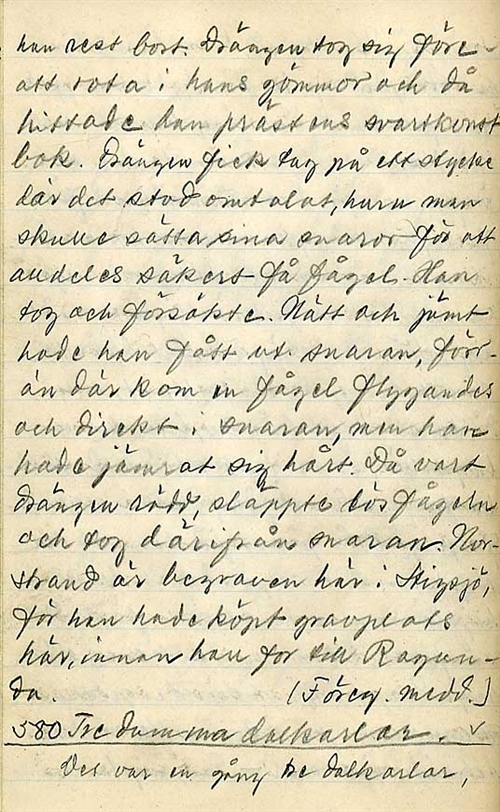 han rest bort. Drängen tog sig före
att rota i hans gömmor och då
hittade han prästens svartkonst
bok. Drängen fick tag på ett stycke
där det stod omtalat, huru man
skulle sätta sina snaror för att
audeles säkert få fågel. Han
tog och försökte. Nätt och jämt
hade han fått ut snaran, förr-
än där kom en fågel flygandes
och direkt i snaran, men han
hade jämrat sig hårt. Då vart
drängen rädd, släppte lös fågeln
och tog därifrån snaran. Nor-
strand är begraven här i Stigsjö,
för han hade köpt gravplats
här, innan han for till Ragun-
da. (Föreg. medd.)
580 Tre dumma dalkarlar. ✓
Det var en gång tre dalkarlar,